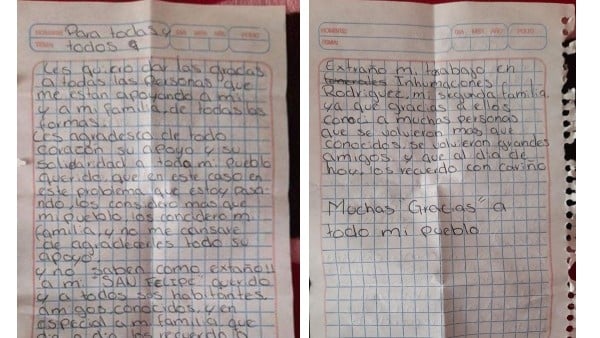 NOMBRE:
Para todas y
DIA MES AÑO
FOLIO
TEMA:
todos
Les quiero dar las gracias
a todas las personas que
me estan apoyando a mi
y a mi familia de todas las
formas.
Les agradesco de todo
corazon su apoyo y su
solidaridad a toda mi pueblo
querido que en este caso en
este problema que estoy pasa-
ndo, los considero mas que
mi pueblo los concidero mi
familia, y no me cansare
de agradecerles todo su
apoyo.
y no saben como extraño!!
a mi "SAN FELIPE" querido
y a todos sus habitantes
amigos, conocidos, y en
especial a mi familia que
dia a dia los recuerdo
NOMBRE:
DIA MES AÑO
FOLIO
TEMA:
Extraño mi trabajo en
Inhumaciones
Rodriguez mi segunda familia
ya que gracias a ellos
conoci a muchas personas
que se volvieron mas que
conocidos, se volvieron grandes
amigos y que al dia de
hoy los recuerdo con cariño
Muchas "Gracias" a
todo mi pueblo